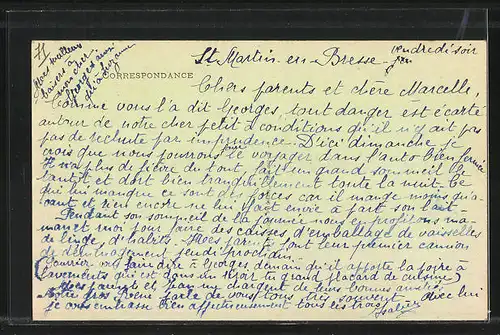 St Martin-en-Bresse - vendredi soir
CORRESPONDANCE
Chers parents et chère Marcelle,
Comme vous l'a dit Georges, tout danger est écarté
autour de notre cher petit à conditions qu'il n'y ait pas
pas de rechute par imprudence. D'ici dimanche je
crois que nous pourrons le voyager dans l'auto bien fermée
Il n'a plus de fièvre du tout, fait un grand sommeil le
et dort bien tranquillement toute la nuit. Ce
qui lui manque ce sont des forces car il mange moins qu'a-
vant et rien encore ne lui fait envie à part son lait.
Pendant son sommeil de la journée nous en profitons ma-
man et moi pour faire des caisses, d'emballage de vaisselles
de linge, d'habits. Mes parents font leur premier camion
de déménagement jeudi prochain.
(Pourriez-vous faire dire à Georges demain qu'il apporte la poire à
lavements qui est dans un tiroir du grand placard de cuisine)
Mes parents et Jean me chargent de leurs bonnes amitiés
Notre gros René parle de vous tous très souvent, avec lui
je vous embrasse bien affectueusement tous les trois.
Mes meilleurs
baisers à
mon cher
Georges